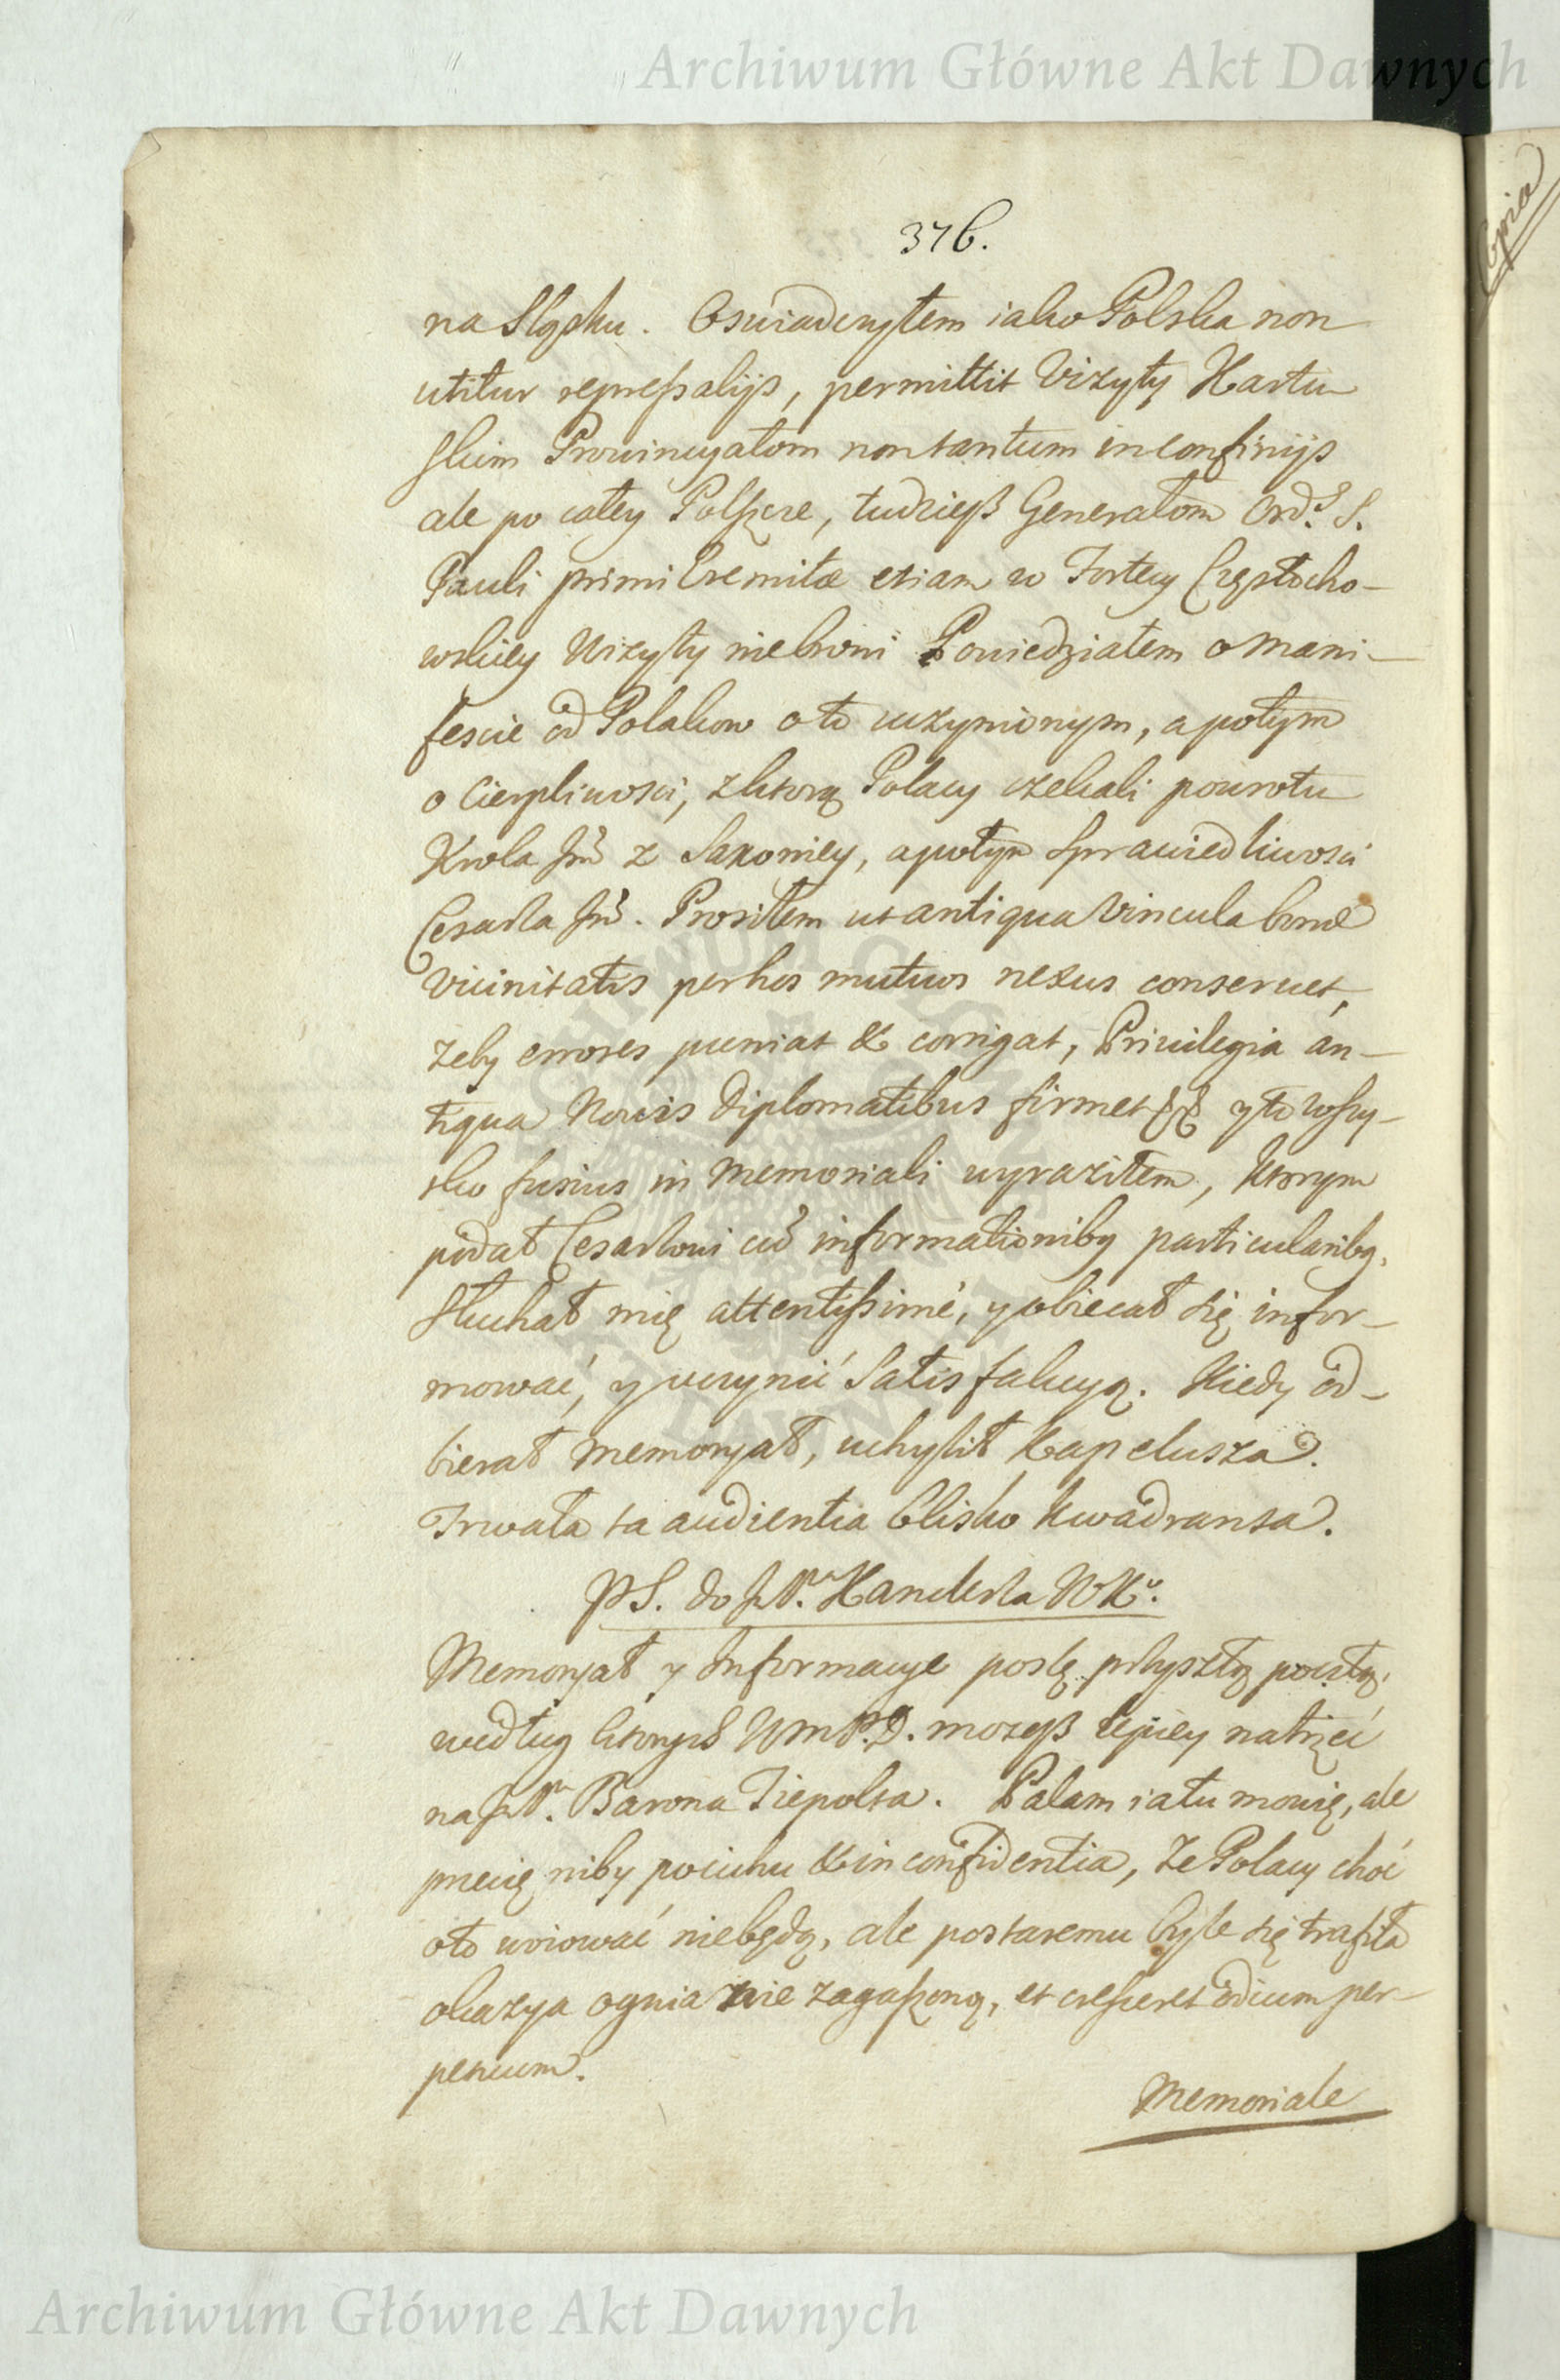 Archiwum Główne Akt Dawnych
376.
na Sląsku. Oswiadczyłem iako Polska non
utitur repressalijs, permittit Vizyty Hartu
skim Prowincyałom non tantum in confinijs
ale po całey Polszcze, tudzieß Generałom Ord.s S.
Pauli primi Eremitæ etiam w Fortecy Częstocho-
wskiey Wizyty niebroni Powiedziałem o Mani-
fescie od Polakow o to uczynionym, a potym
o Cierpliwosci, z ktorą Polacy czekali powrotu
Krola Jmć z Saxoniey, a potym Sprawiedliwosci
Cesarza Jmć. Prosiłem ut antiqua Vincula bonæ
Vicinitatis per hos mutuos nexus conservet,
zeby errores puniat & corrigat, Privilegia an-
tiqua Novis Diplomatibus firmet && y to wszy-
sko fusius in Memoriali wyraziłem, ktorym
podał Cesarzowi cũ informationiby particulariby.
Słuchał mię attentissimè, y obiecał się infor-
mować, y uczynić Satisfakcyą. Kiedy od-
bierał Memoryał, uchylił kapelusza.
Trwała ta audientia blisko kwadransa.
PS. do JP. Kanclerza WK.
Memoryał y Informacye poslę przyszłą pocztą.
według ktorych WmP.D. mozeß lepiey natrzeć
na JP. Barona Tiepolta. Palam ia tu mowię, ale
przecię niby pocichu & in confidentia, ze Polacy choć
oto woiować niebędą, ale postaremu byle się trafiła
okazya ognia nie zagaszoną, et cresceret odium per-
petuum.
Memoriale
Kopia
Archiwum Główne Akt Dawnych